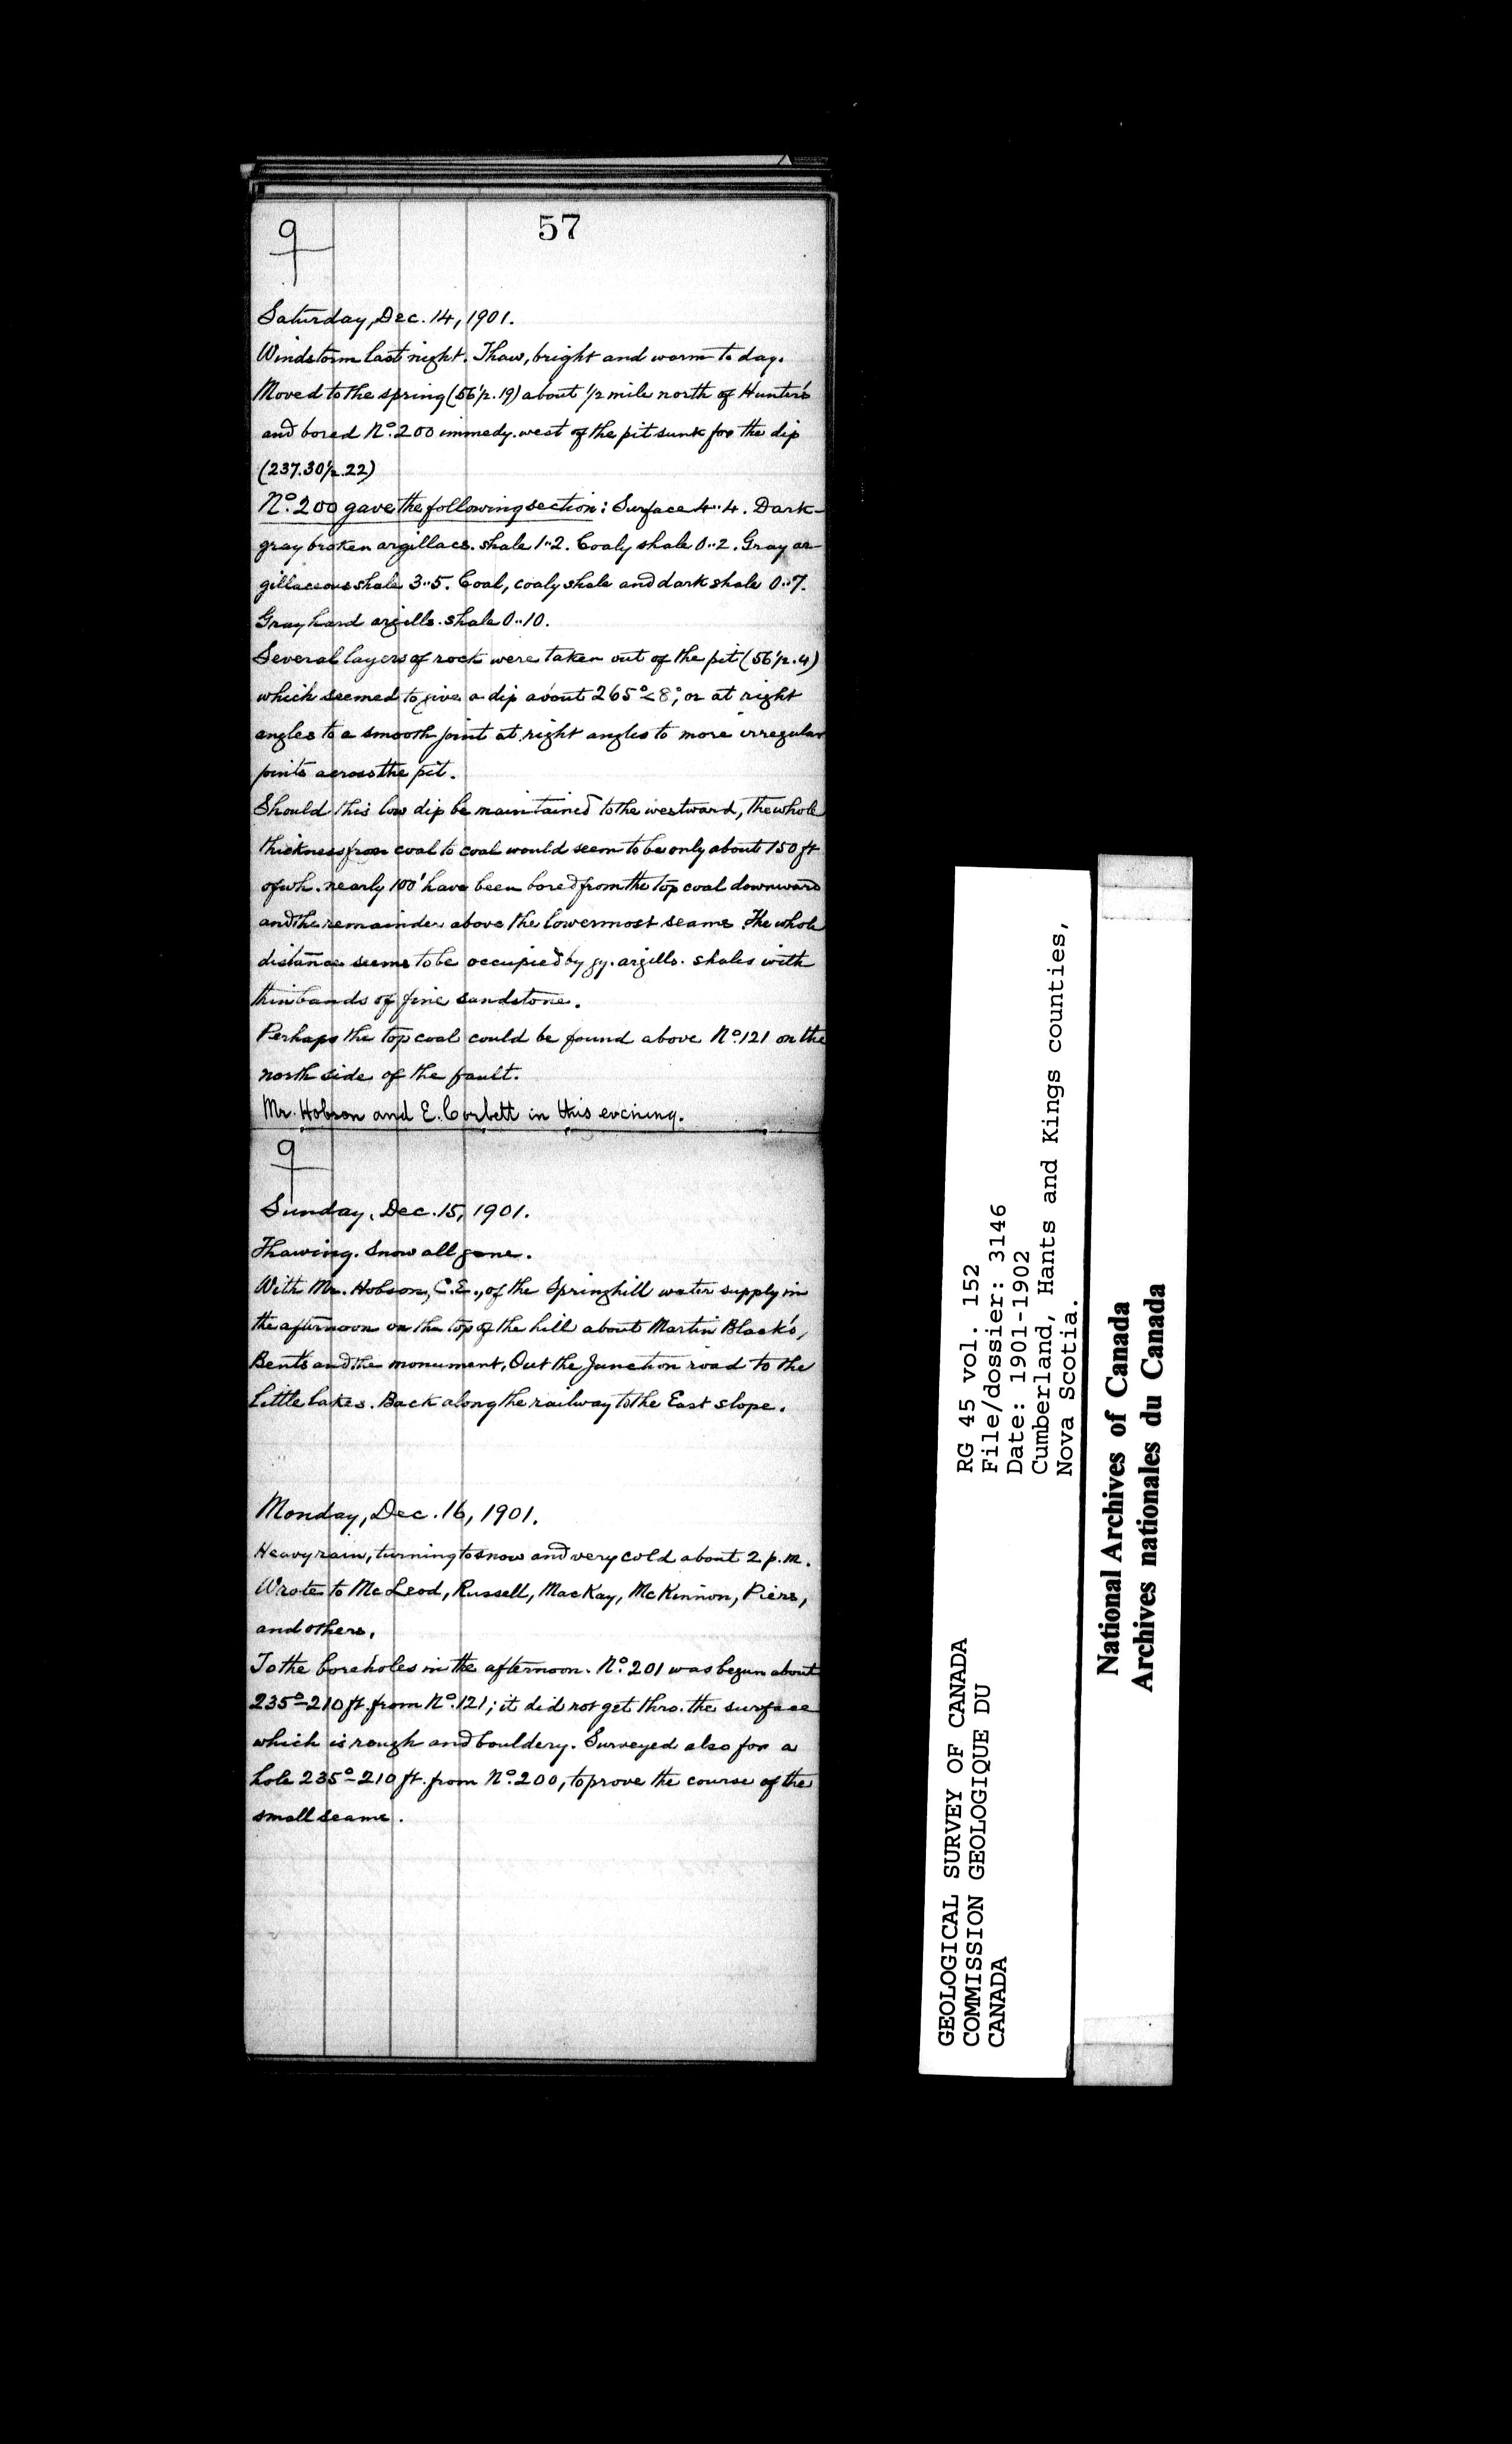 57
9
Saturday, Dec. 14, 1901.
Windstorm last night. Thaw, bright and warm to day.
Moved to the spring (56½.19) about ½ mile north of Hunter's
and bored No. 200 immedy. west of the pit sunk for the dip
(237.30½.22)
No. 200 gave the following section: Surface 4..4. Dark-
gray broken argillacs. shale 1..2. Coaly shale 0..2. Gray ar-
gillaceous shale 3..5. Coal, coaly shale and dark shale 0..7.
Gray hard argills. shale 0..10.
Several layers of rock were taken out of the pit (56½.4)
which seemed to give a dip about 265°<8°, or at right
angles to a smooth joint at right angles to more irregular
joints across the pit.
Should this low dip be maintained to the westward, the whole
thickness from coal to coal would seem to be only about 150 ft
of wh. nearly 100' have been bored from the top coal downward
and the remainder above the lowermost seams. The whole
distance seems to be occupied by gy. argills. shales with
thin bands of fine sandstone.
Perhaps the top coal could be found above No. 121 on the
north side of the fault.
Mr. Hobson and E. Corbett in this evening.
9
Sunday, Dec. 15, 1901.
Thawing. Snow all gone.
With Mr. Hobson, C.E., of the Springhill water supply in
the afternoon on the top of the hill about Martin Black's,
Bents and the monument, Out the Junction road to the
Little Lakes. Back along the railway to the East slope.
Monday, Dec. 16, 1901.
Heavy rain, turning to snow and very cold about 2 p.m.
Wrote to McLeod, Russell, MacKay, McKinnon, Piers,
and others.
To the boreholes in the afternoon. No. 201 was begun about
235°-210 ft. from No. 121; it did not get thro. the surface
which is rough and bouldery. Surveyed also for a
hole 235°-210 ft. from No. 200, to prove the course of the
small seams.
GEOLOGICAL SURVEY OF CANADA
COMMISSION GEOLOGIQUE DU
CANADA
RG 45 vol. 152
File/dossier: 3146
Date: 1901-1902
Cumberland, Hants and Kings counties,
Nova Scotia.
National Archives of Canada
Archives nationales du Canada